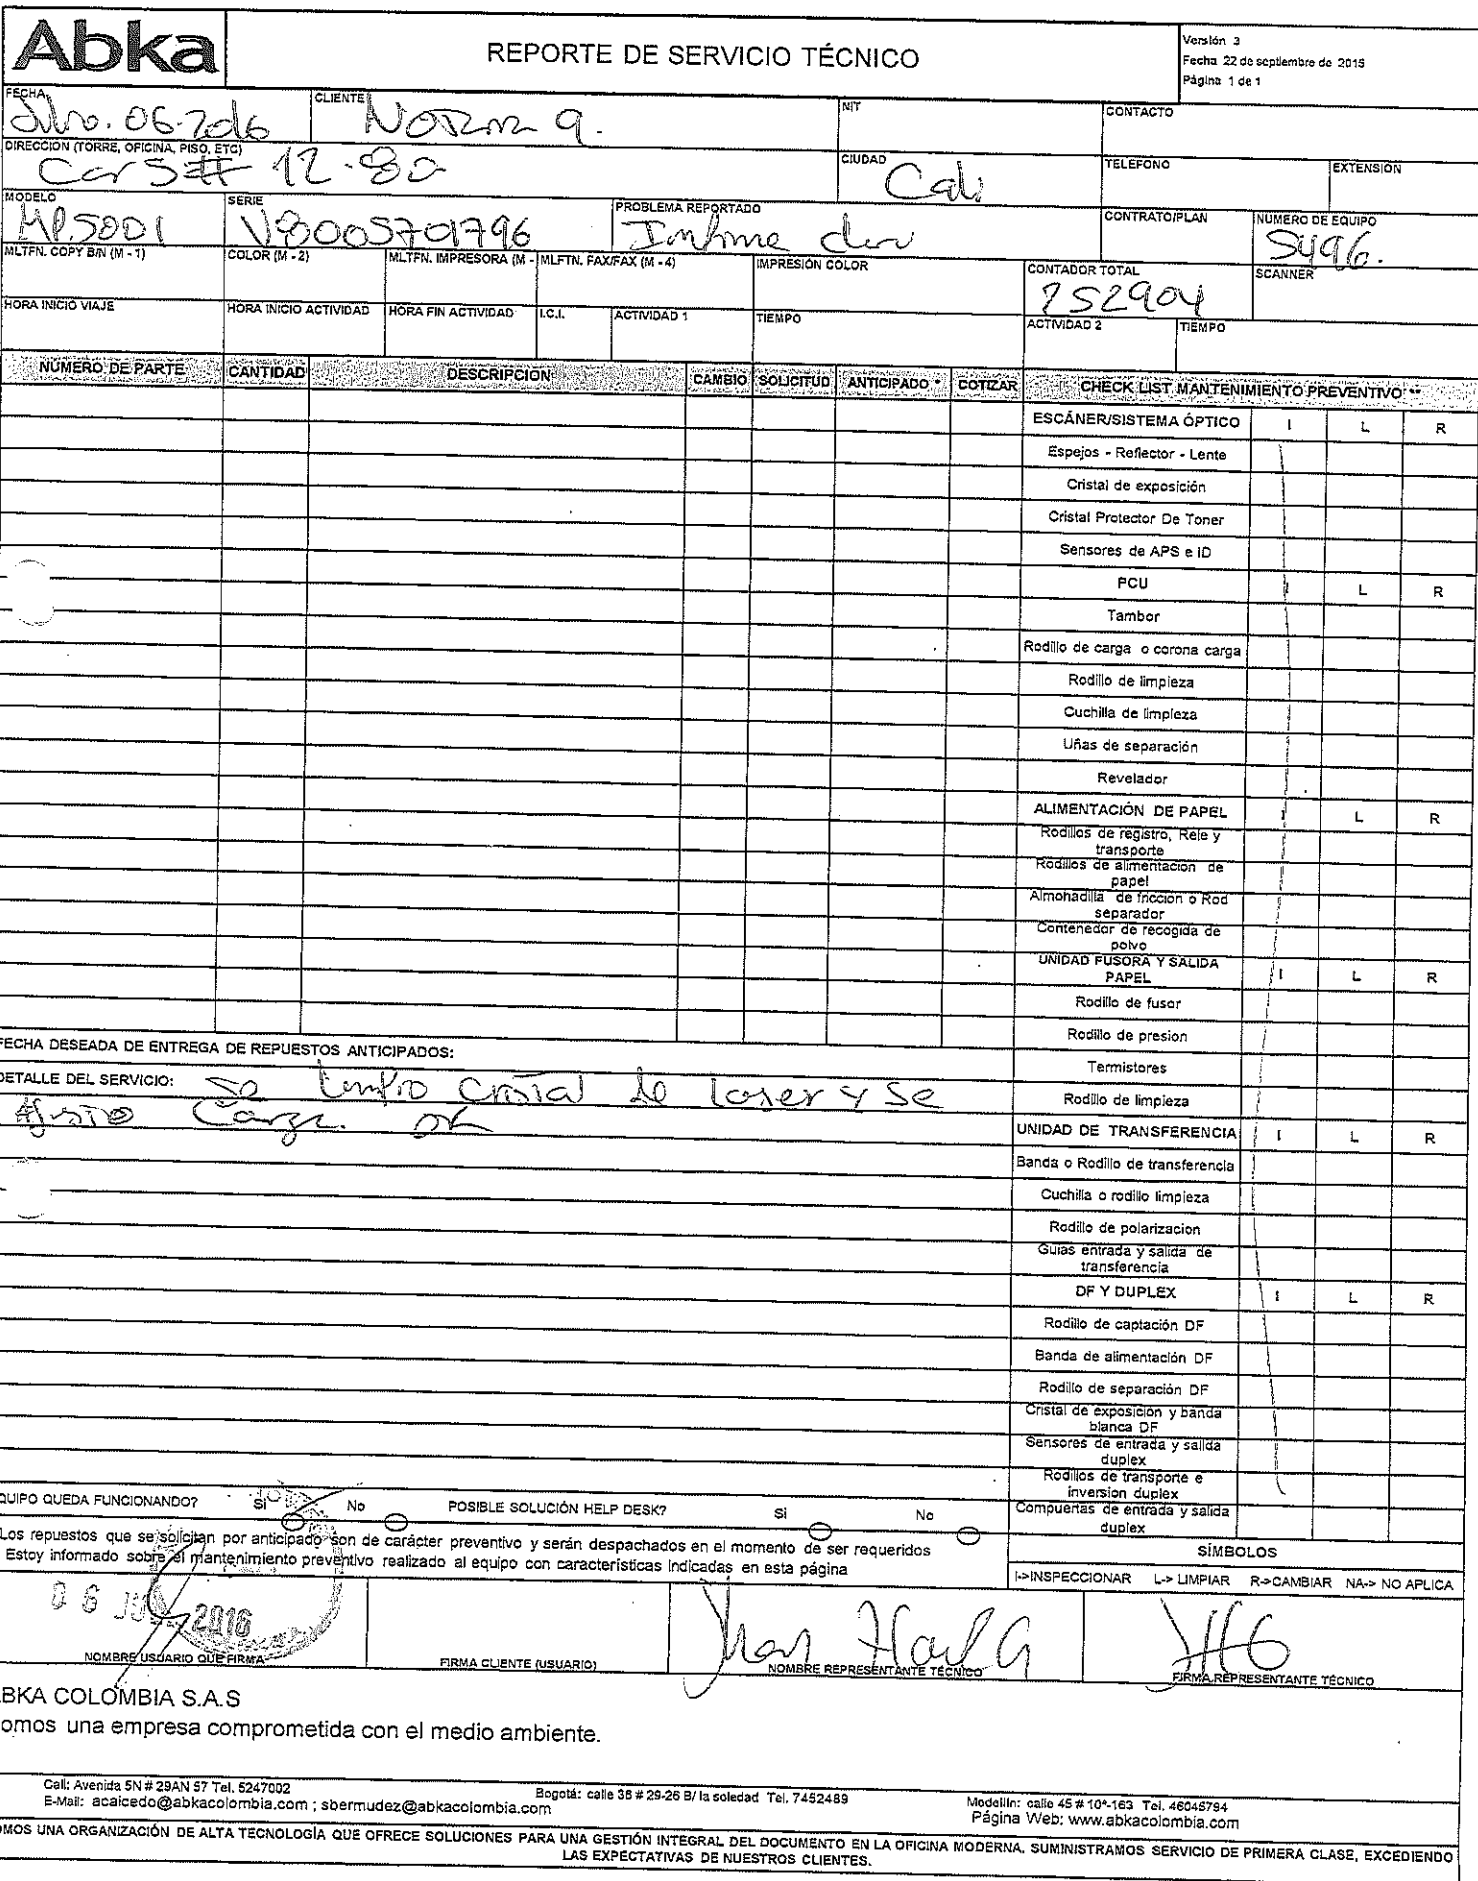 Abka
REPORTE DE SERVICIO TÉCNICO
Versión 3
Fecha 22 de septiembre de 2015
Página 1 de 1
FECHA
06-2016
CLIENTE
NORMA
NIT
CONTACTO
DIRECCIÓN (TORRE, OFICINA, PISO, ETC)
Car 5 # 12-80
CIUDAD
Cali
TELEFONO
EXTENSIÓN
MODELO
MP.5001
SERIE
V8005701796
PROBLEMA REPORTADO
CONTRATO/PLAN
NUMERO DE EQUIPO
5496.
MLTFN. COPY B/N (M - 1)
COLOR (M - 2)
MLTFN. IMPRESORA (M -
MLFTN. FAX/FAX (M - 4)
IMPRESIÓN COLOR
CONTADOR TOTAL
252904
SCANNER
HORA INICIO VIAJE
HORA INICIO ACTIVIDAD
HORA FIN ACTIVIDAD
I.C.I.
ACTIVIDAD 1
TIEMPO
ACTIVIDAD 2
TIEMPO
NÚMERO DE PARTE CANTIDAD DESCRIPCIÓN CAMBIO SOLICITUD ANTICIPADO * COTIZAR CHECK LIST MANTENIMIENTO PREVENTIVO **
ESCÁNER/SISTEMA ÓPTICO I L R
Espejos - Reflector - Lente
Cristal de exposición
Cristal Protector De Toner
Sensores de APS e ID
PCU I L R
Tambor
Rodillo de carga o corona carga
Rodillo de limpieza
Cuchilla de limpieza
Uñas de separación
Revelador
ALIMENTACIÓN DE PAPEL I L R
Rodillos de registro, Rele y
transporte
Rodillos de alimentacion de
papel
Almohadilla de friccion o Rod
separador
Contenedor de recogida de
polvo
UNIDAD FUSORA Y SALIDA
PAPEL I L R
Rodillo de fusor
Rodillo de presion
FECHA DESEADA DE ENTREGA DE REPUESTOS ANTICIPADOS:
Termistores
DETALLE DEL SERVICIO: se limpio cristal de laser y se
Rodillo de limpieza
Ajusto Carga. ok
UNIDAD DE TRANSFERENCIA I L R
Banda o Rodillo de transferencia
Cuchilla o rodillo limpieza
Rodillo de polarizacion
Guias entrada y salida de
transferencia
DF Y DUPLEX I L R
Rodillo de captación DF
Banda de alimentación DF
Rodillo de separación DF
Cristal de exposición y banda
blanca DF
Sensores de entrada y salida
duplex
Rodillos de transporte e
inversion duplex
QUIPO QUEDA FUNCIONANDO? Si No POSIBLE SOLUCIÓN HELP DESK? Si No
Compuertas de entrada y salida
duplex
Los repuestos que se solicitan por anticipado son de carácter preventivo y serán despachados en el momento de ser requeridos
Estoy informado sobre el mantenimiento preventivo realizado al equipo con características indicadas en esta página
SÍMBOLOS
I->INSPECCIONAR L-> LIMPIAR R->CAMBIAR NA-> NO APLICA
06 JUL 2016
NOMBRE USUARIO QUE FIRMA
FIRMA CLIENTE (USUARIO)
NOMBRE REPRESENTANTE TÉCNICO
FIRMA REPRESENTANTE TÉCNICO
BKA COLOMBIA S.A.S
omos una empresa comprometida con el medio ambiente.
Cali: Avenida 5N # 29AN 57 Tel. 5247002
E-Mail: acaicedo@abkacolombia.com ; sbermudez@abkacolombia.com
Bogotá: calle 38 # 29-26 B/ la soledad Tel. 7452489
Medellín: calle 45 # 10ª-163 Tel. 46045794
Página Web: www.abkacolombia.com
OMOS UNA ORGANIZACIÓN DE ALTA TECNOLOGÍA QUE OFRECE SOLUCIONES PARA UNA GESTIÓN INTEGRAL DEL DOCUMENTO EN LA OFICINA MODERNA. SUMINISTRAMOS SERVICIO DE PRIMERA CLASE, EXCEDIENDO
LAS EXPECTATIVAS DE NUESTROS CLIENTES.